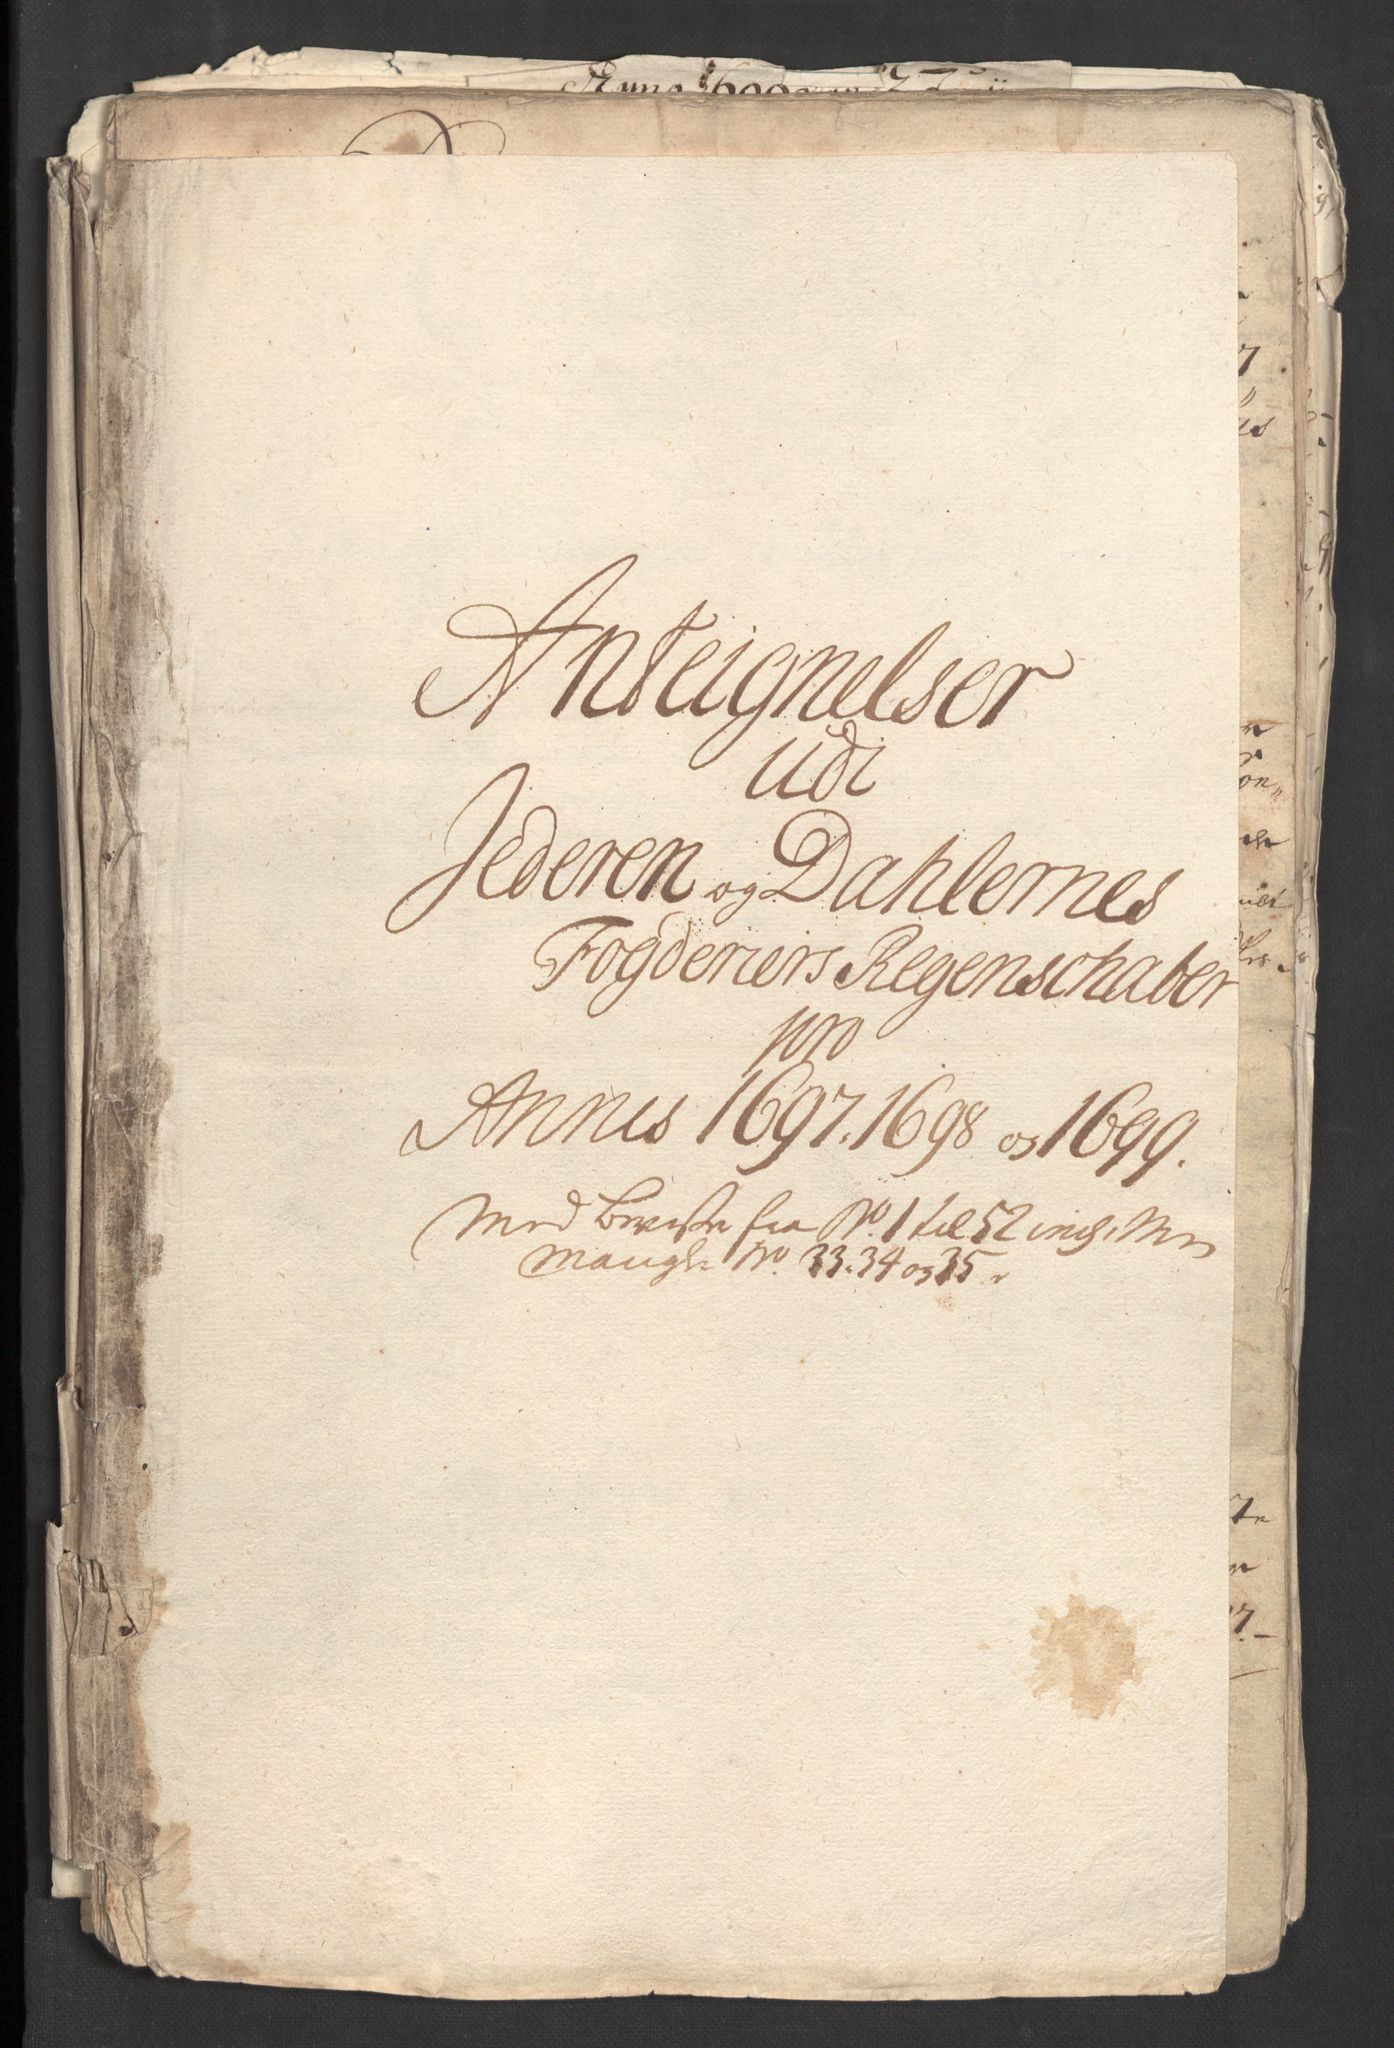 Anteignelser
udi
Jederen og Dahlernes
Fogderiers Regenschaber
pro
Annis 1697. 1698 og 1699.
Med Beviser fra No. 1 til 52 incl. Men
Mangler No. 33. 34 og 35.